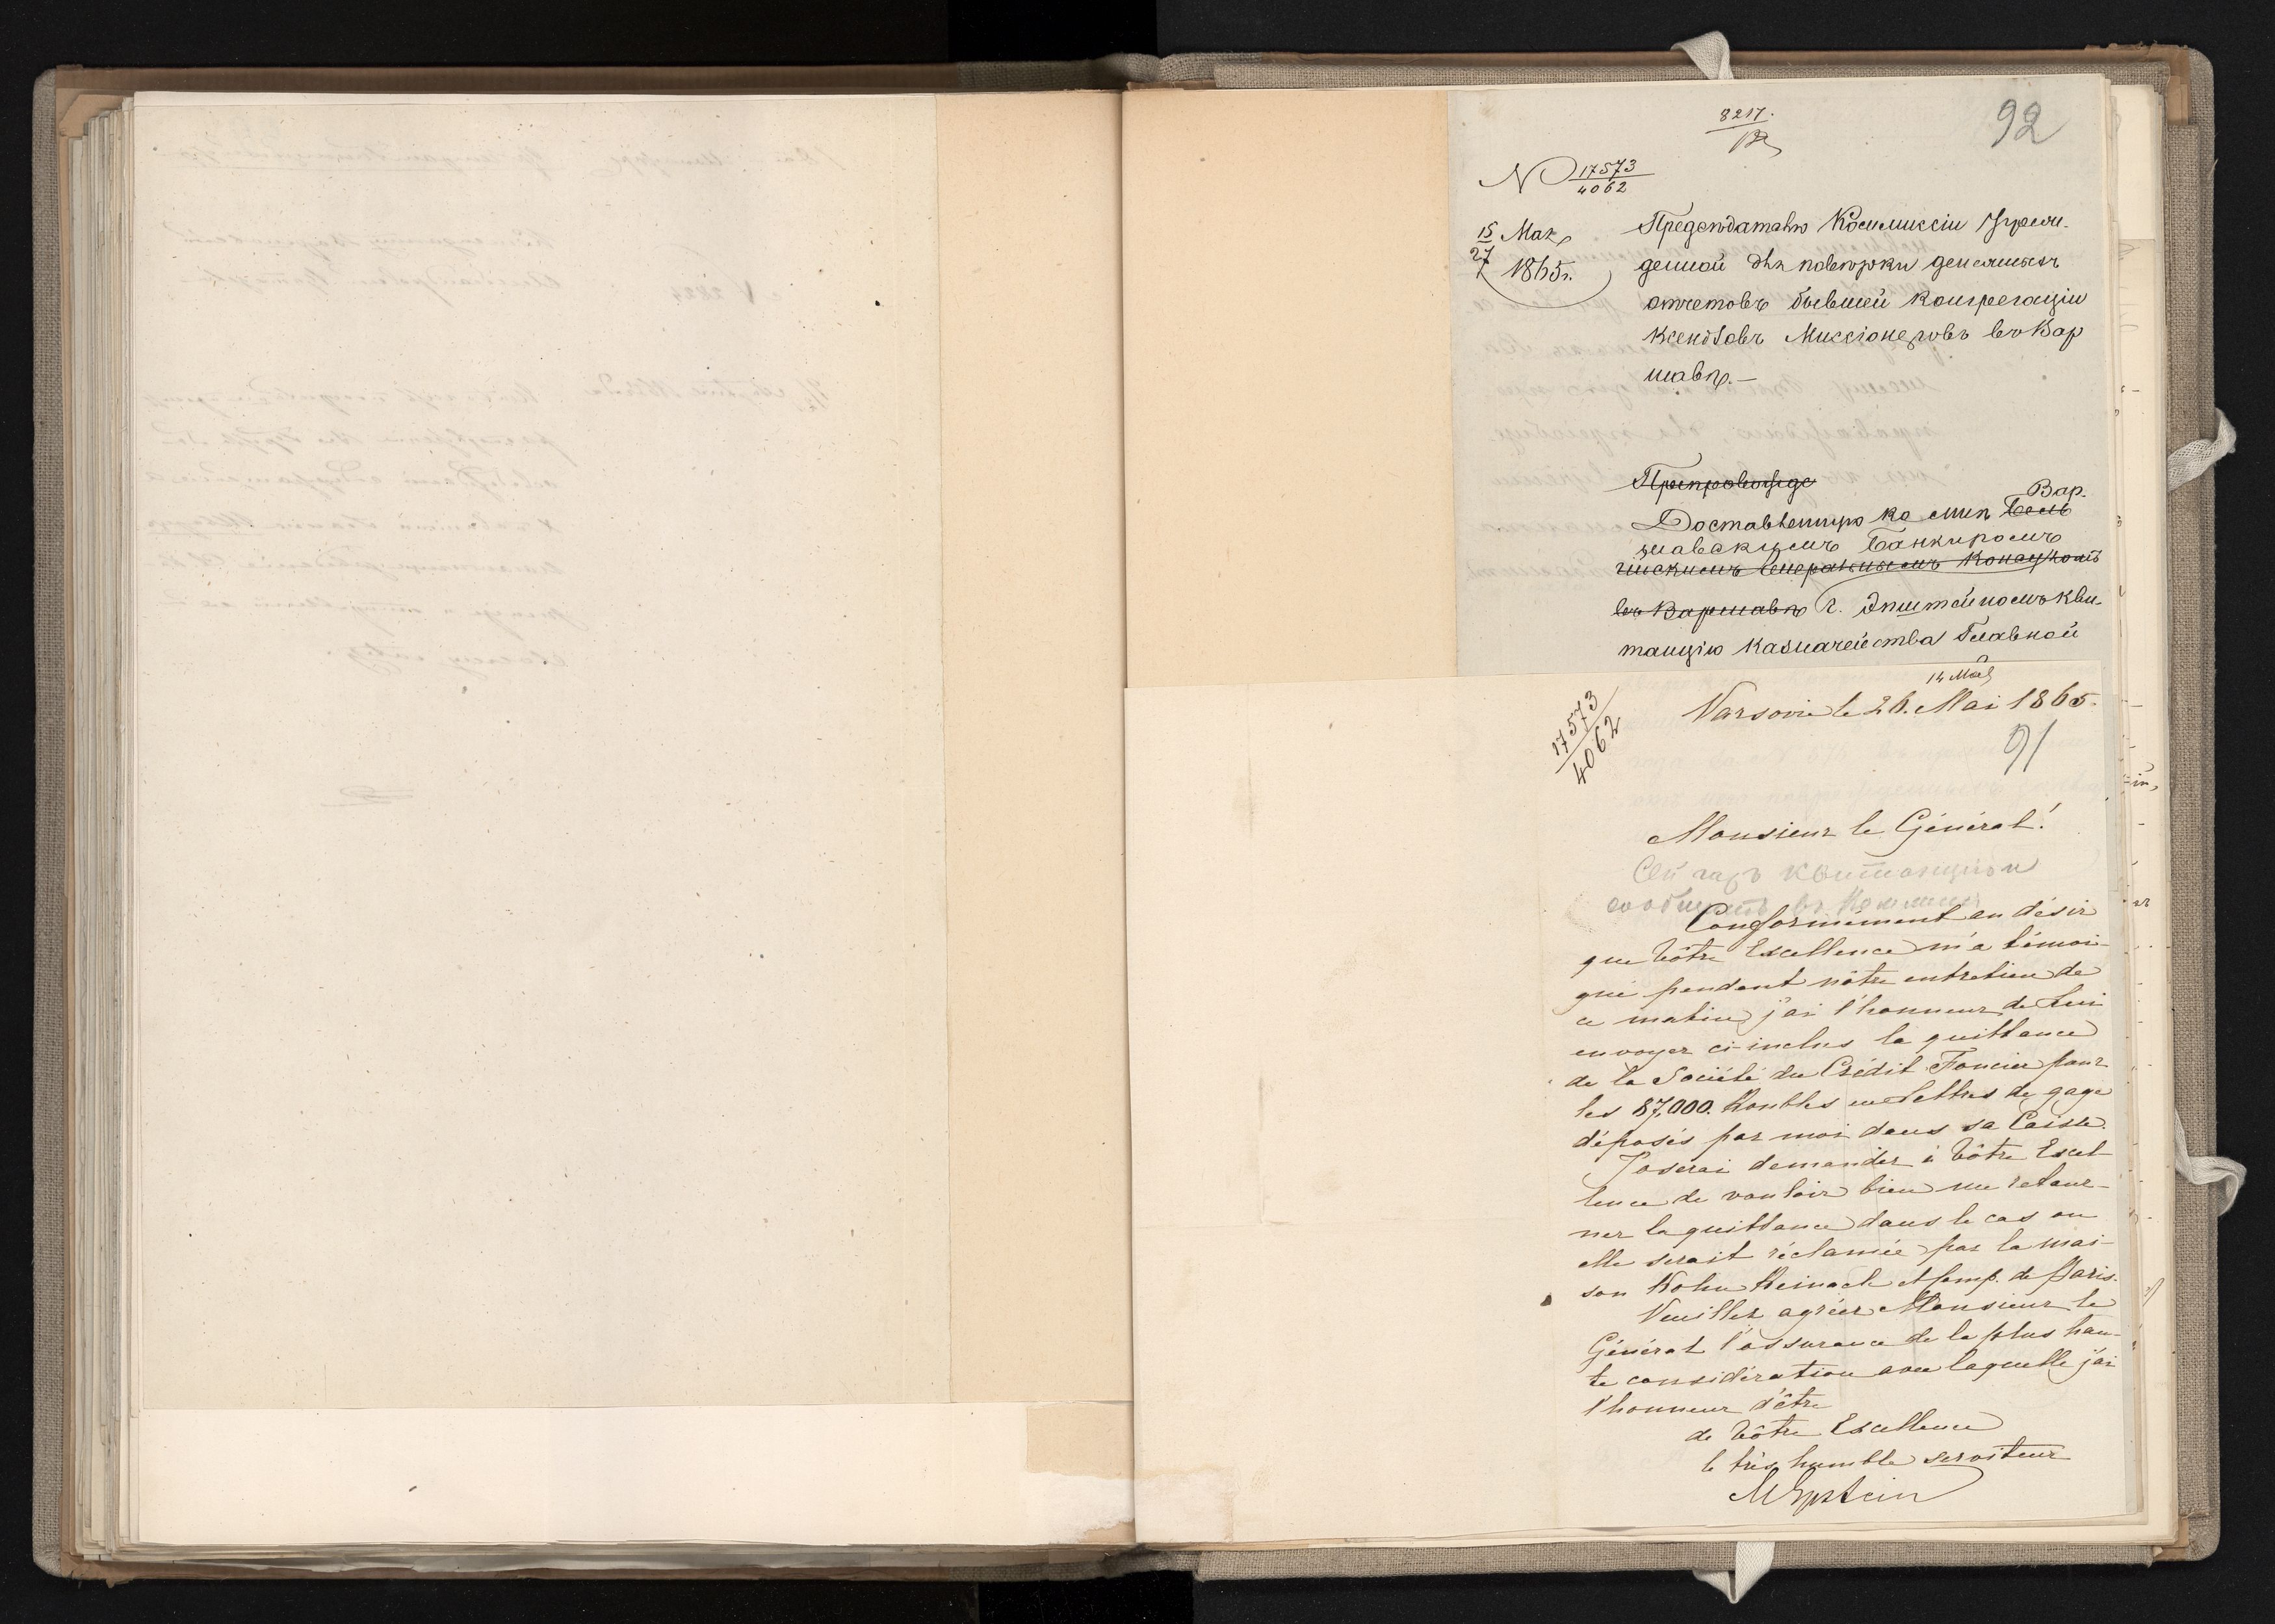 92
8217.
N 17573
4062
15 Мая
27
1865г.
Председателю Коммиссіи Учреж-
денной для поверки денежныхъ
отчетовъ бывшей конгрегаціи
Ксендзовъ Миссіонеровъ въ Вар
шавѣ.—
Препровожде
Доставленную ко мнѣ Бель Вар-
шавскимъ Банкиромъ
гійскимъ Генеральнымъ Консуломъ
въ Варшавѣ г. Эпштейномъ кви-
танцію Казначейства Главной
17573
4062
14 Мая
Varsovie le 26. Mai 1865.
91
Monsieur le Général!
квитанціи
Conformément au désir
que Vôtre Excellence m'a témoi-
gné pendant nôtre entretien de
ce matin j'ai l'honneur de Lui
envoyer ci-inclus la quittance
de la Société du Crédit Foncier pour
les 87,000. Roubles en Lettres de gage
déposés par moi dans sa Caisse.
J'oserai demander à Vôtre Excel
lence de vouloir bien me retour-
ner la quittance dans le cas ou
elle serait réclamée par la mai-
son Kohn Reinach et Comp. de Paris.
Veuillez agréer Monsieur le
Général l'assurance de la plus hau-
te considération avec laquelle j'ai
l'honneur d'être
de Vôtre Excellence
le très humble serviteur
M Epstein